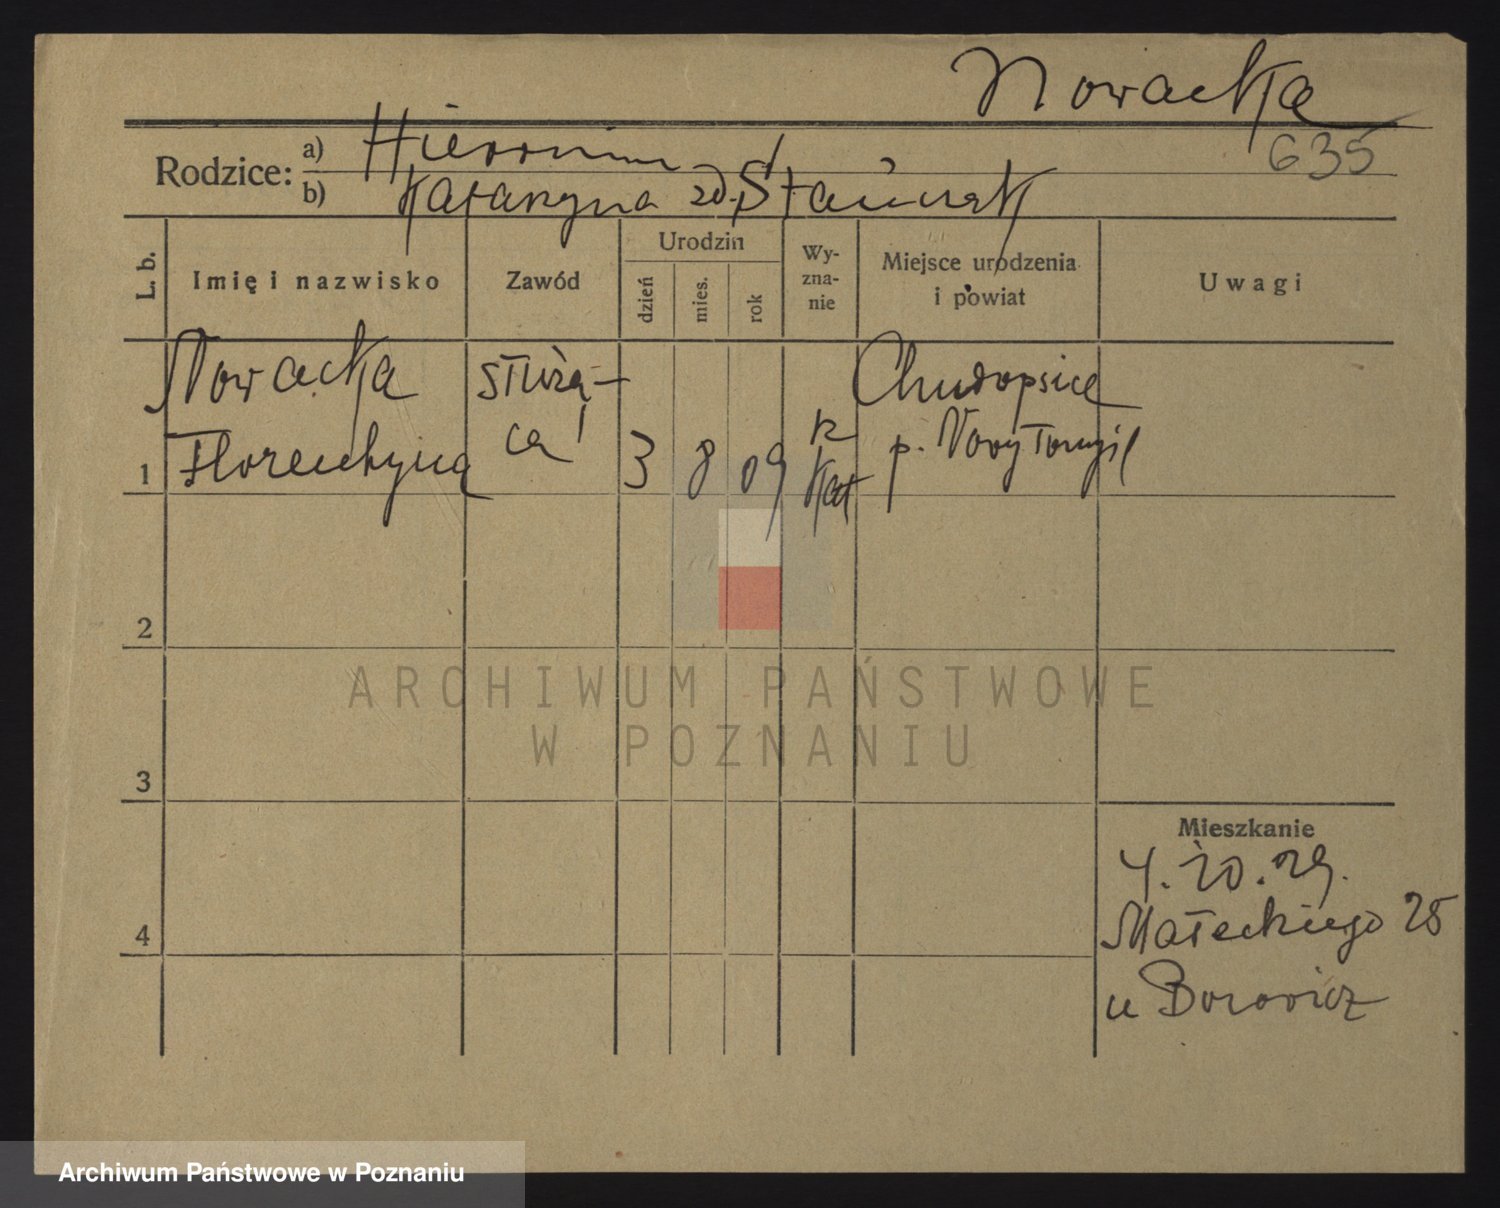 Nowacka
635
Rodzice: a) Hieronim
b) Katarzyna zd. Stańczak
L. b.
Imię i nazwisko
Zawód
Urodzin
dzień
mies.
rok
Wy-
zna-
nie
Miejsce urodzenia
i powiat
Uwagi
Nowacka służą- Chudopsice
1 Florentyna ca 3 8 09 rz kat p. Nowy Tomyśl
2
3
4
Mieszkanie
4.10.29.
Małeckiego 25
u Borowicz
ARCHIWUM PAŃSTWOWE
W POZNANIU
Archiwum Państwowe w Poznaniu